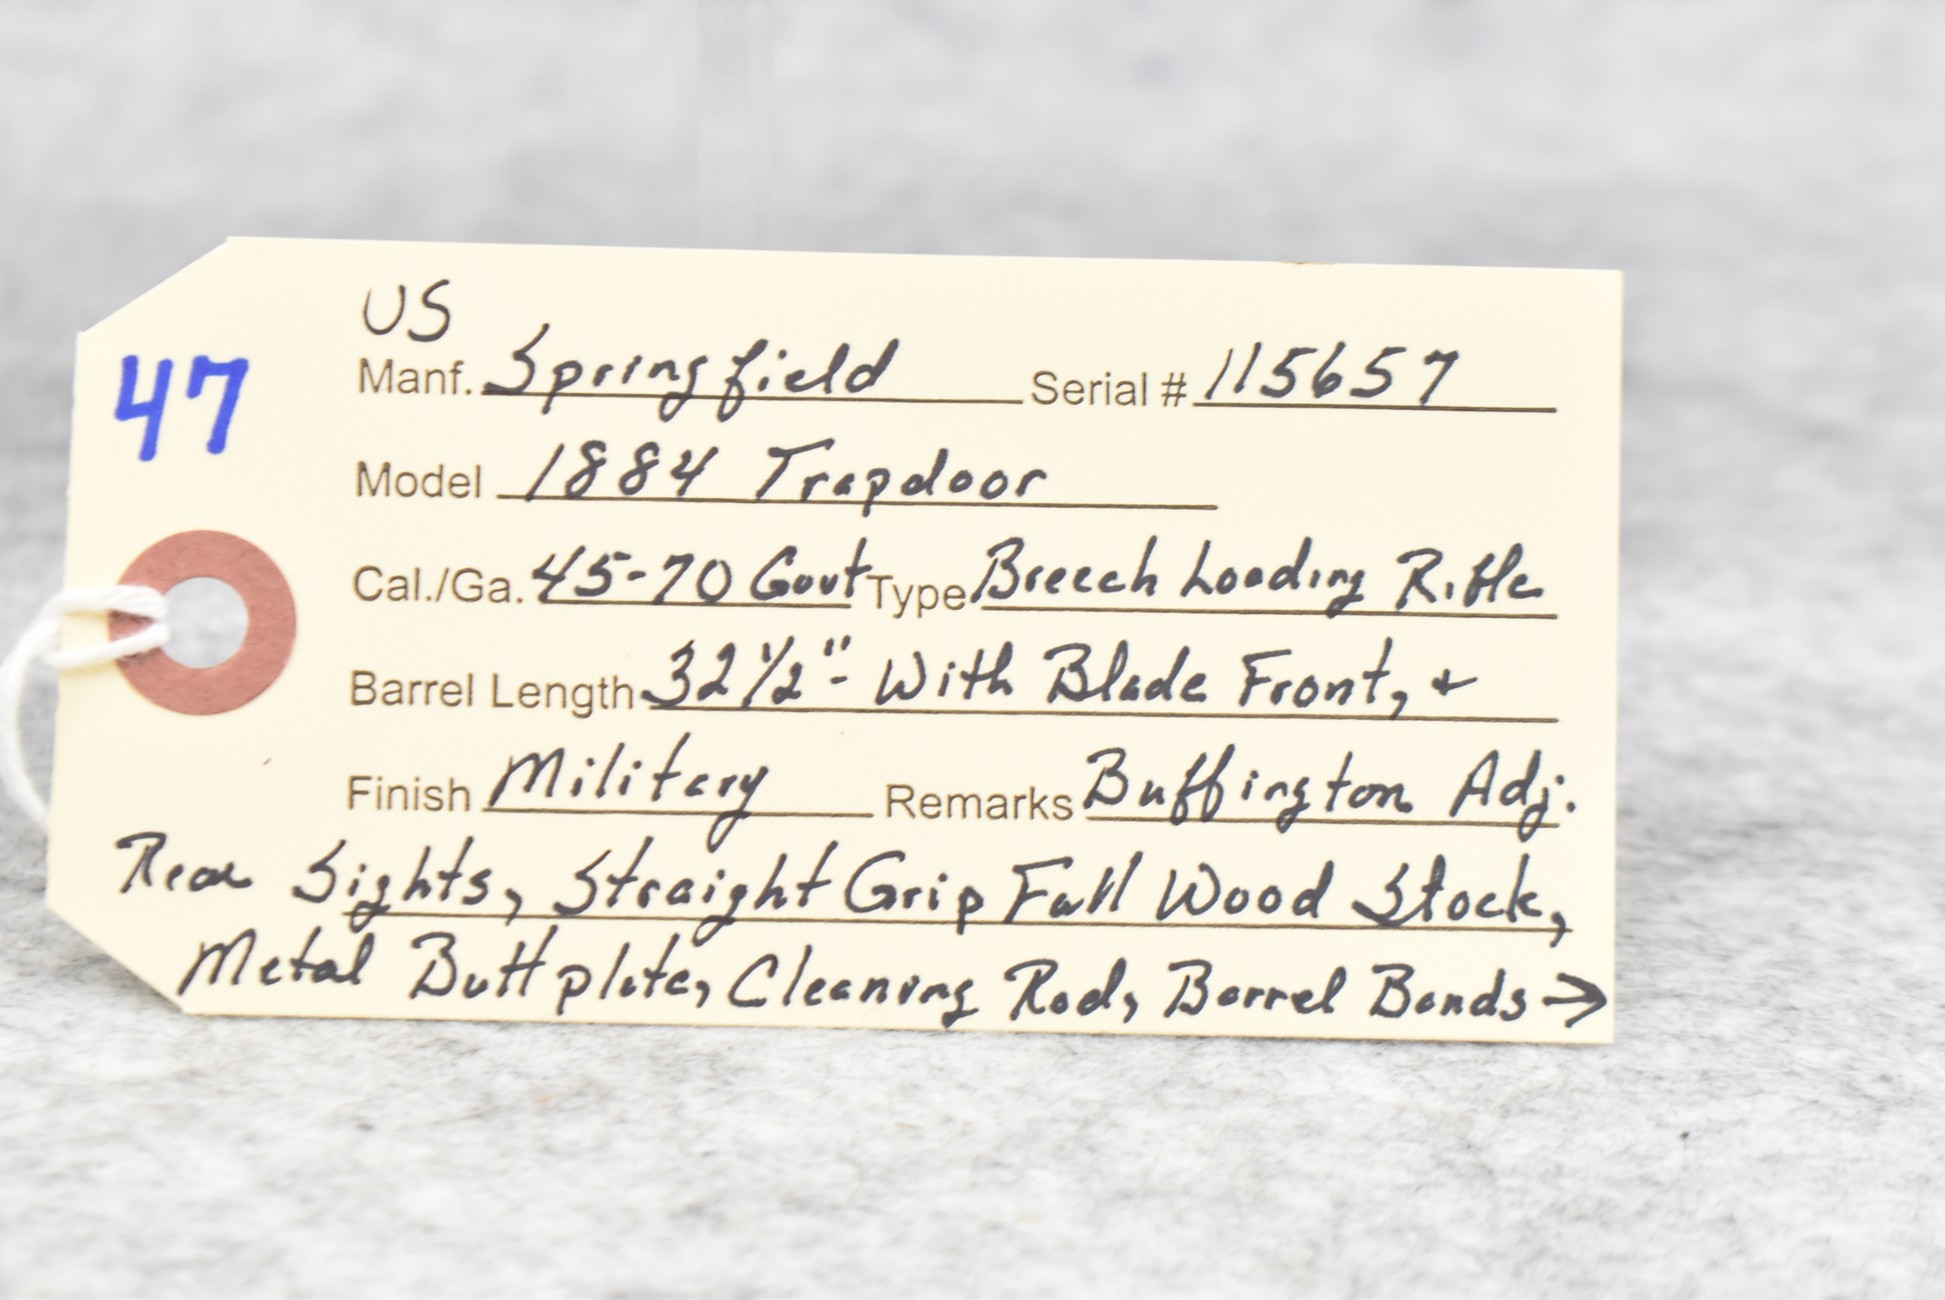 47
US
Manf. Springfield Serial # 115657
Model 1884 Trapdoor
Cal./Ga. 45-70 Govt Type Breech Loading Rifle
Barrel Length 32 1/2" - With Blade Front, +
Finish Military Remarks Buffington Adj.
Rear Sights, Straight Grip Full Wood Stock,
Metal Buttplate, Cleaning Rod, Barrel Bands →